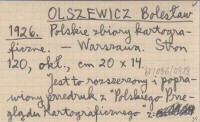 OLSZEWICZ Bolesław
1926. Polskie zbiory kartogra-
ficzne. — Warszawa. Stron
120, okł., cm 20 x 14.
Jest to rozszerzony i popra-
wiony przedruk z "Polskiego Prze-
glądu Kartograficznego z: